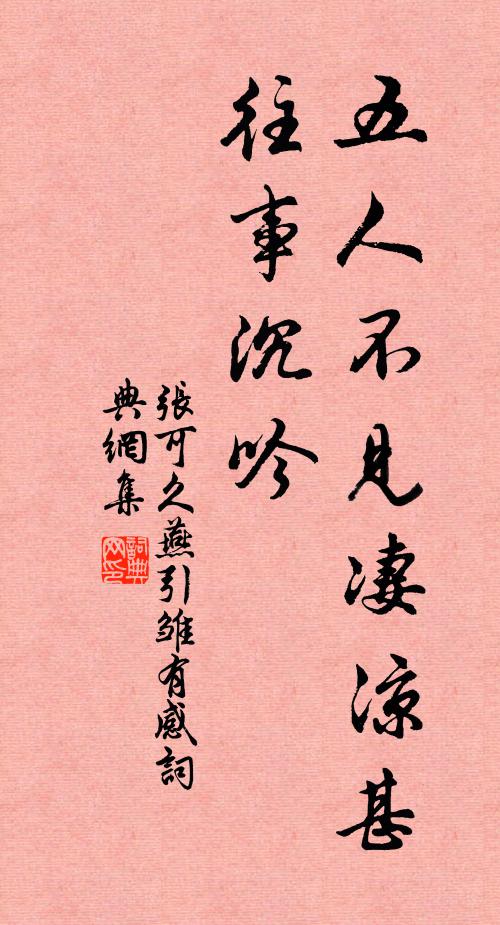 五人不見凄涼甚
往事沉吟
張可久燕引雏有感詞
典網集
詞典
网印